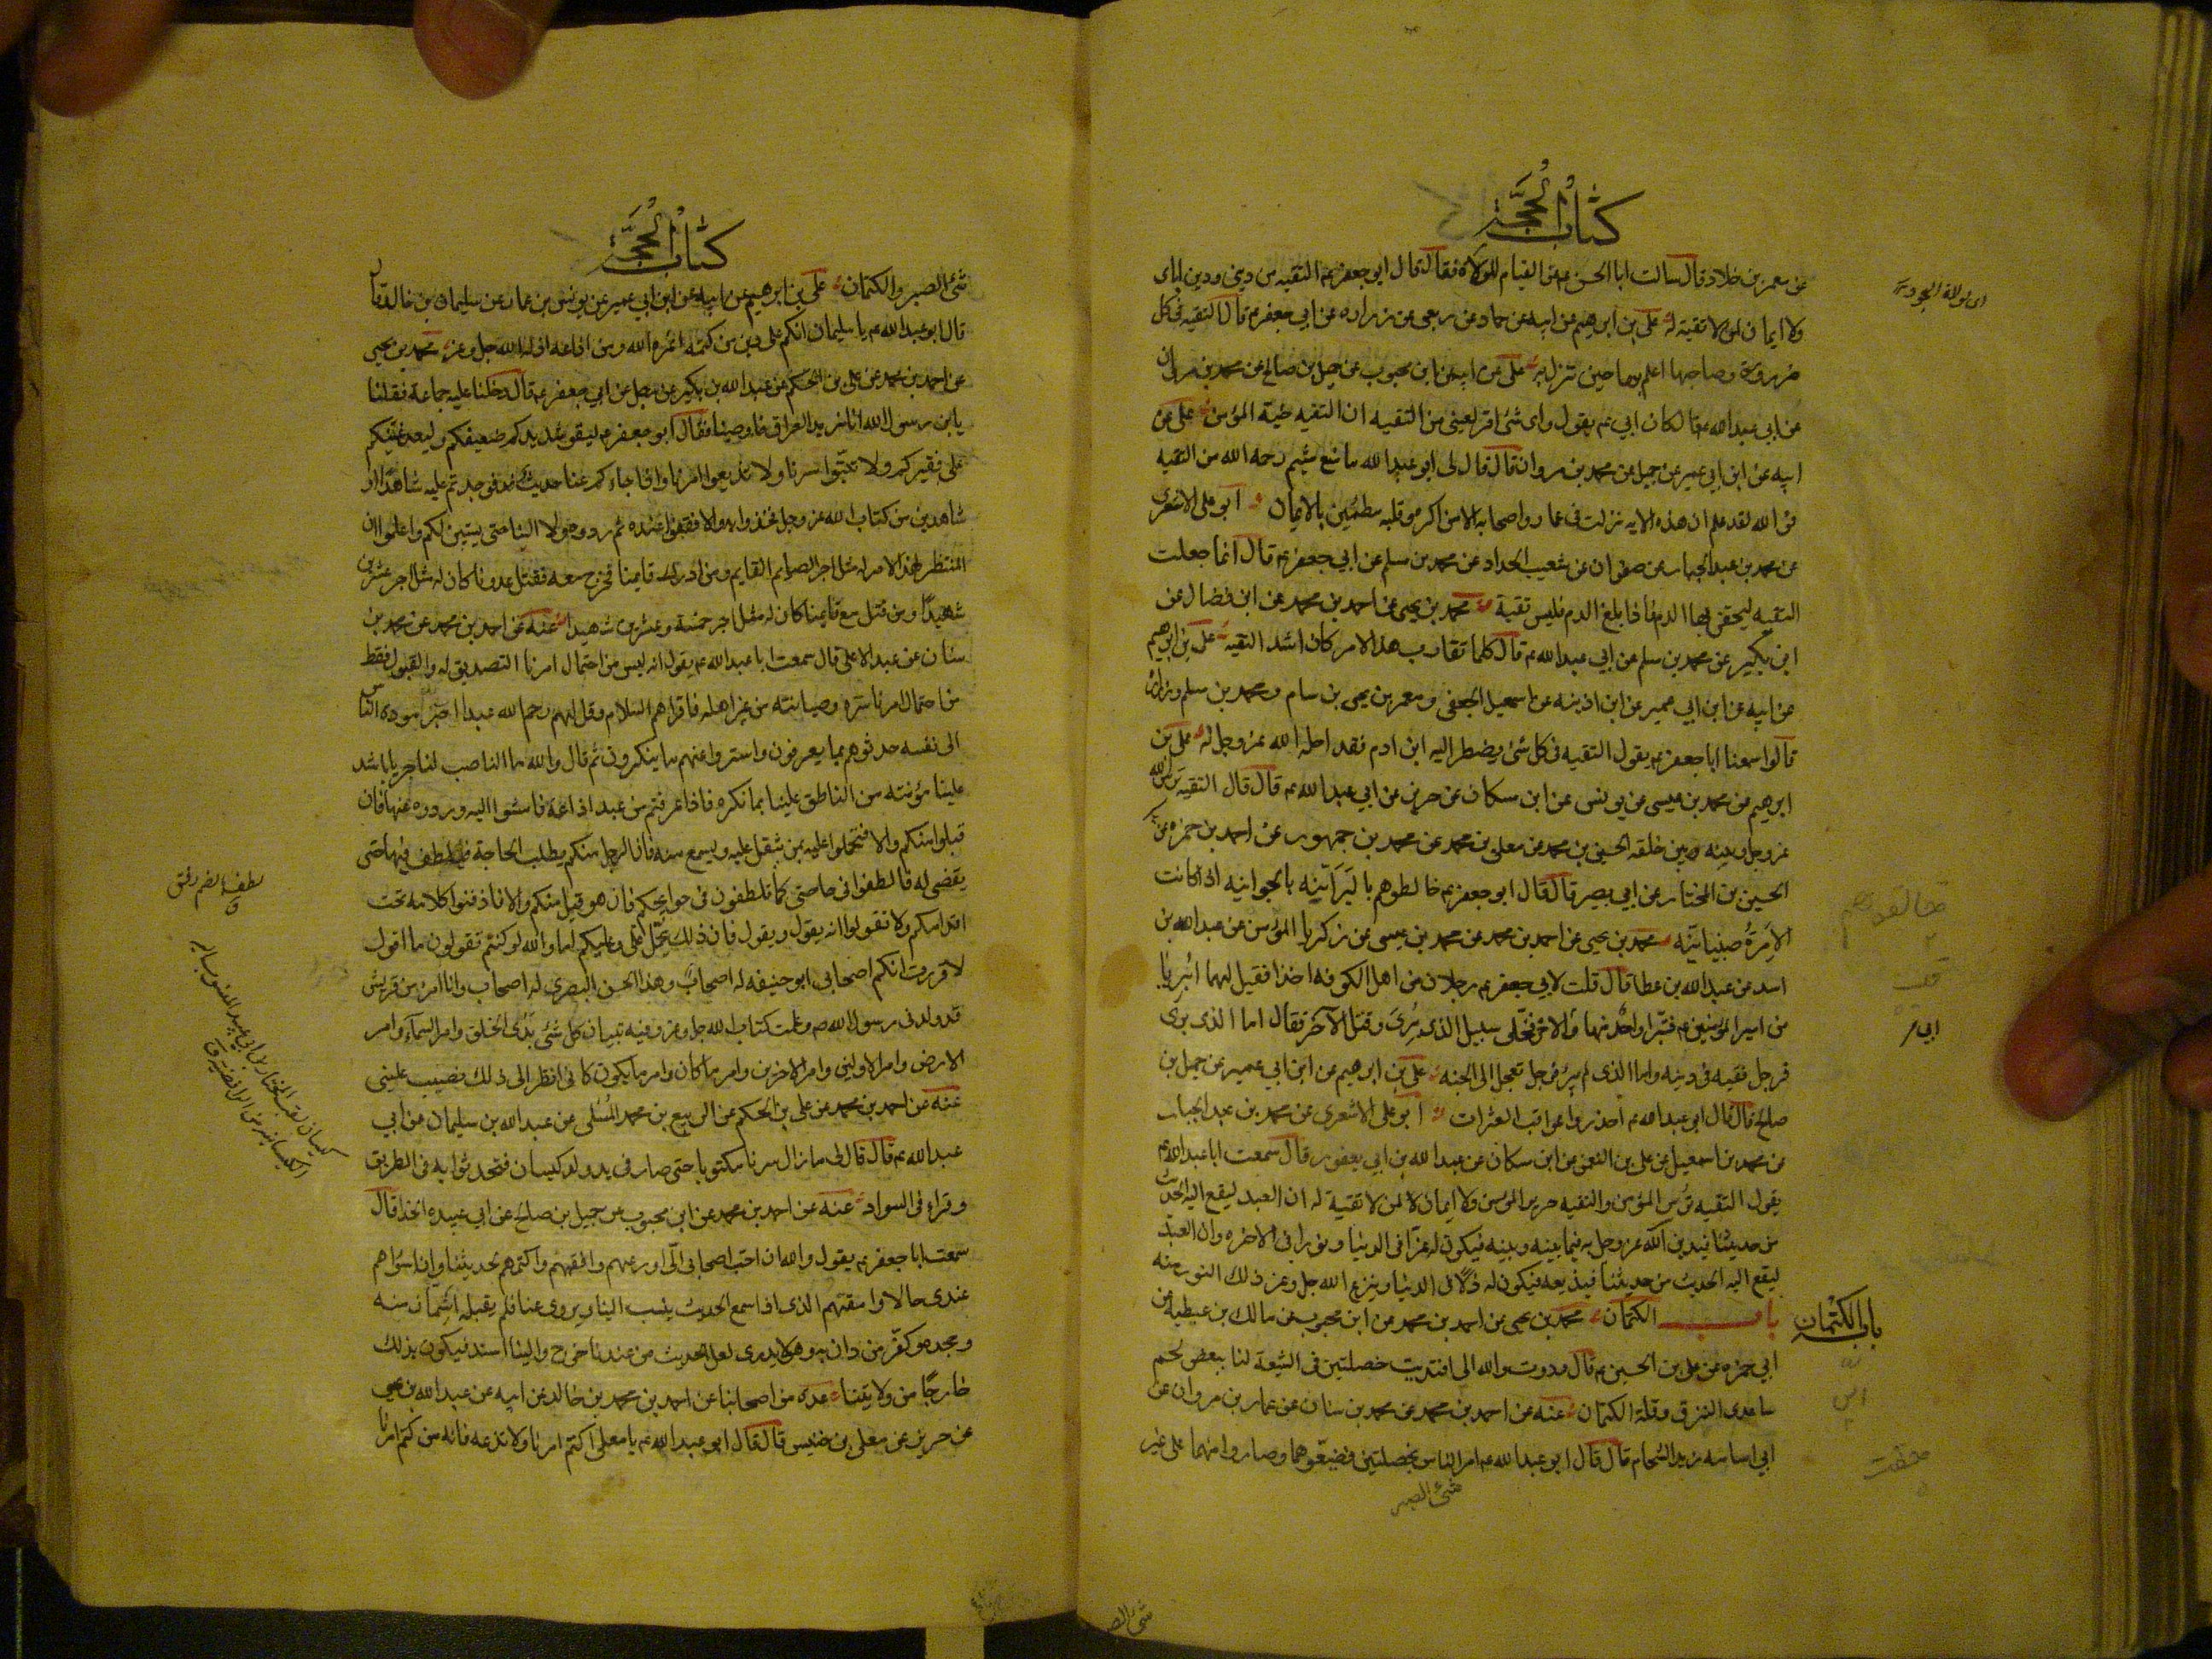 كتاب الحجة
عن معمر بن خلاد قال سالت ابا الحسن ع عن القيام للولاة فقال قال ابو جعفر ع التقيه من ديني ودين اباى
ولا ايمان لمن لا تقية له على بن ابرهيم عن ابيه عن حماد عن ربعى عن زراره عن ابى جعفر ع قال التقيه فى كل
ضرورة وصاحبها اعلم بها حين تنزل به على عن ابيه عن ابن محبوب عن جميل بن صالح عن محمد بن مروان
عن ابى عبد الله ع قال كان ابى ع يقول واى شئ اقر لعينى من التقيه ان التقيه جنة المؤمن على عن
ابيه عن ابن ابى عمير عن جميل عن محمد بن مروان قال قال لى ابو عبد الله ما منع ميثم رحمه الله من التقيه
فو الله لقد علم ان هذه الايه نزلت فى عمار واصحابه الا من اكره وقلبه مطمئن بالايمان ابو على الاشعرى
عن محمد بن عبد الجبار عن صفوان عن شعيب الحداد عن محمد بن مسلم عن ابى جعفر ع قال انما جعلت
التقيه ليحقن بها الدم فاذا بلغ الدم فليس تقية محمد بن يحيى عن احمد بن محمد عن ابن فضال عن
ابن بكير عن محمد بن مسلم عن ابى عبد الله ع قال كلما تقارب هذا الامر كان اشد للتقيه على بن ابرهيم
عن ابيه عن ابن ابى عمير عن ابن اذينه عن اسمعيل الجعفى ومعمر بن يحيى بن سام ومحمد بن مسلم وزراره
قالوا سمعنا ابا جعفر ع يقول التقيه فى كل شئ يضطر اليه ابن ادم فقد احله الله عز وجل له على بن
ابرهيم عن محمد بن عيسى عن يونس عن ابن مسكان عن حريز عن ابى عبد الله ع قال قال التقيه ترس الله
عز وجل بينه وبين خلقه الحسين بن محمد عن معلى بن محمد عن محمد بن جمهور عن احمد بن حمزه عن
الحسين بن المختار عن ابى بصير قال قال ابو جعفر ع خالطوهم بالبرانيه بالجوانيه اذا كانت
الامرة صبيانيه محمد بن يحيى عن احمد بن محمد عن محمد بن عيسى عن زكريا المؤمن عن عبد الله بن
اسد عن عبد الله بن عطا قال قلت لابى جعفر ع رجلان من اهل الكوفه اخذا فقيل لهما ابريا
من امير المؤمنين ع فبرا واحد منهما وابى الآخر فخلى سبيل الذى برى وقتل الآخر فقال اما الذى برى
فرجل فقيه فى دينه واما الذى لم يبرء فرجل تعجل الى الجنه على بن ابرهيم عن ابن ابى عمير عن جميل بن
صالح قال قال ابو عبد الله ع احذروا عواقب العثرات ابو على الاشعرى عن محمد بن عبد الجبار
عن محمد بن اسمعيل عن على بن النعمن عن ابن مسكان عن عبد الله بن ابى يعفور قال سمعت ابا عبد الله ع
يقول التقيه ترس المؤمن والتقيه حرز المؤمن ولا ايمان لمن لا تقية له ان العبد ليقع اليه الحديث
من حديثنا فيدين الله عز وجل به فيما بينه وبينه فيكون له عزا فى الدنيا ونورا فى الاخره وان العبد
ليقع اليه الحديث من حديثنا فيذيعه فيكون له ذلا فى الدنيا وينزع الله جل وعز ذلك النور منه
باب الكتمان محمد بن يحيى عن احمد بن محمد عن ابن محبوب عن مالك بن عطيه عن
ابى حمزه عن على بن الحسين ع قال وددت والله انى افتديت خصلتين فى الشيعة لنا ببعض لحم
ساعدى النزق وقلة الكتمان عنه عن احمد بن محمد عن محمد بن سنان عن عمار بن مروان عن
ابى اسامه زيد الشحام قال قال ابو عبد الله ع امر الناس بخصلتين فضيعوهما وصاروا منهما على غير
شئ الصبر
باب الكتمان
كتاب الحجة
شئ الصبر والكتمان على بن ابرهيم عن ابيه عن ابن ابى عمير عن يونس بن عمار عن سليمان بن خالد قال
قال ابو عبد الله ع يا سليمان انكم على دين من كتمه اعزه الله ومن اذاعه اذله الله جل وعز محمد بن يحيى
عن احمد بن محمد عن على بن الحكم عن عبد الله بن بكير عن رجل عن ابى جعفر ع قال دخلنا عليه جماعة فقلنا
يابن رسول الله انا نريد العراق فاوصينا فقال ابو جعفر ع ليقو شديدكم ضعيفكم وليعد غنيكم
على فقيركم ولا تبثوا سرنا ولا تذيعوا امرنا واذا جاءكم عنا حديث فوجدتم عليه شاهدا او
شاهدين من كتاب الله عز وجل فخذوا به والا فقفوا عنده ثم ردوه الينا حتى يستبين لكم واعلموا ان
المنتظر لهذا الامر له مثل اجر الصايم القايم ومن ادرك قايمنا فخرج معه فقتل عدونا كان له مثل اجر عشرين
شهيدا ومن قتل مع قايمنا كان له مثل اجر خمسة وعشرين شهيدا عنه عن احمد بن محمد عن محمد بن
سنان عن عبد الاعلى قال سمعت ابا عبد الله ع يقول انه ليس من احتمال امرنا التصديق له والقبول فقط
من احتمال امرنا ستره وصيانته من غير اهله فاقراهم السلام وقل لهم رحم الله عبدا اجتر مودة الناس
الى نفسه حدثوهم بما يعرفون واستروا عنهم ما ينكرون ثم قال والله ما الناصب لنا حربا باشد
علينا مؤنته من الناطق علينا بما نكره فاذا عرفتم من عبد اذاعة فامشوا اليه وردوه عنها فان
قبل منكم والا فتحملوا عليه بمن يثقل عليه ويسمع منه فان الرجل منكم يطلب الحاجة فيلطف فيها حتى
يقضى له فالطفوا فى حاجتى كما تلطفون فى حوايجكم فان هو قبل منكم والا فادفنوا كلامه تحت
اقدامكم ولا تقولوا انه يقول ويقول فان ذلك يحمل على وعليكم اما والله لو كنتم تقولون ما اقول
لاقررت انكم اصحابى ابو حنيفه له اصحاب وهذا الحسن البصرى له اصحاب وانا امرؤ من قريش
قد ولدنى رسول الله ص وعلمت كتاب الله جل وعز وفيه تبيان كل شئ بدء الخلق وامر السمآء وامر
الارض وامر الاولين وامر الاخرين وامر ما كان وامر ما يكون كانى انظر الى ذلك نصب عينى
عنه عن احمد بن محمد عن على بن الحكم عن الربيع بن محمد المسلى عن عبد الله بن سليمان عن ابى
عبد الله ع قال قال لى ما زال سرنا مكتوما حتى صار فى يد ولد كيسان فتحدثوا به فى الطريق
وقراء فى السواد عنه عن احمد بن محمد عن ابن محبوب عن جميل بن صالح عن ابى عبيده الحذا قال
سمعت ابا جعفر ع يقول والله ان احب اصحابى الى اورعهم وافقههم واكتمهم لحديثنا وان اسواهم
عندى حالا وامقتهم الذى اذا سمع الحديث ينسب الينا ويروى عنا فلم يقبله اشمأز منه
وجحده وكفر من دان به وهو لا يدرى لعل الحديث من عندنا خرج والينا اسند فيكون بذلك
خارجا من ولايتنا عدة من اصحابنا عن احمد بن محمد بن خالد عن ابيه عن عبد الله بن يحيى
عن حريز عن معلى بن خنيس قال قال ابو عبد الله ع يا معلى اكتم امرنا ولا تذعه فانه من كتم امرنا